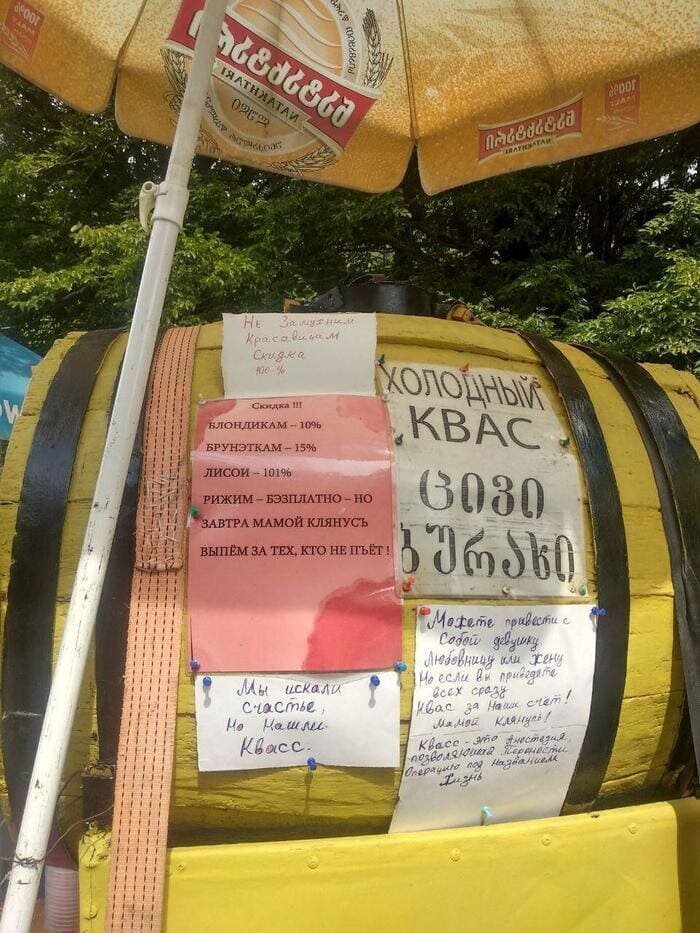 100%
MALT
ნატახტარი
NATAKHTARI
ლუდი
100%
MALT
ნატახტარი
NATAKHTARI
Не Замужним
Красавицам
Скидка
100-%
Скидка !!!
БЛОНДИКАМ – 10%
БРУНЭТКАМ – 15%
ЛИСОИ – 101%
РИЖИМ – БЭЗПЛАТНО – НО
ЗАВТРА МАМОЙ КЛЯНУСЪ
ВЫПЁМ ЗА ТЕХ, КТО НЕ ПЪЁТ !
ХОЛОДНЫЙ
КВАС
ცივი
ბურახი
Мы искали
счастье,
Но нашли
Квасс.
Можете привести с
Собой девушку
Любовницу или жену
Но если вы приведёте
всех сразу
Квас за наш счёт!
Мамой клянусь!
Квасс - это Анестезия
позволяющая Перенести
Операцию под названием
Жизнь